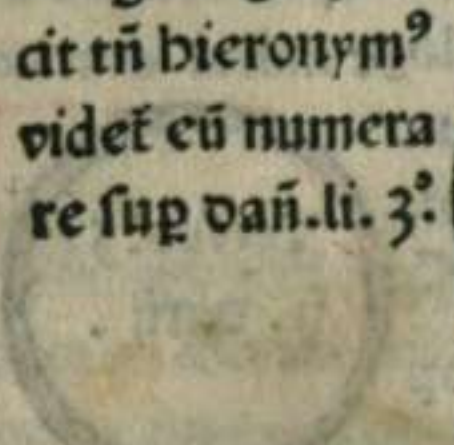 cit tñ hieronymꝰ
videt̃ eũ numera
re ſuꝑ dañ.li. 3°.